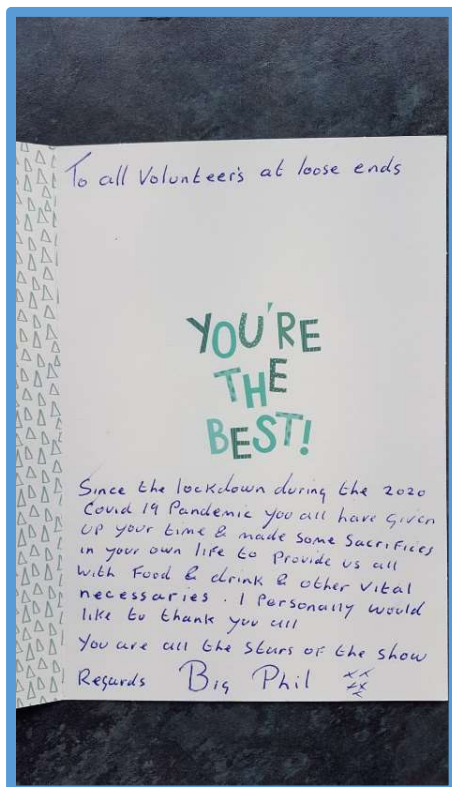 To all Volunteer's at loose ends
YOU'RE
THE
BEST!
Since the lockdown during the 2020
Covid 19 Pandemic you all have Given
up your time & made some Sacrifices
in your own life to Provide us all
with Food & drink & other Vital
necessaries. I Personally would
like to thank you all
You are all the Stars of the show
Regards Big Phil xx
xx
x